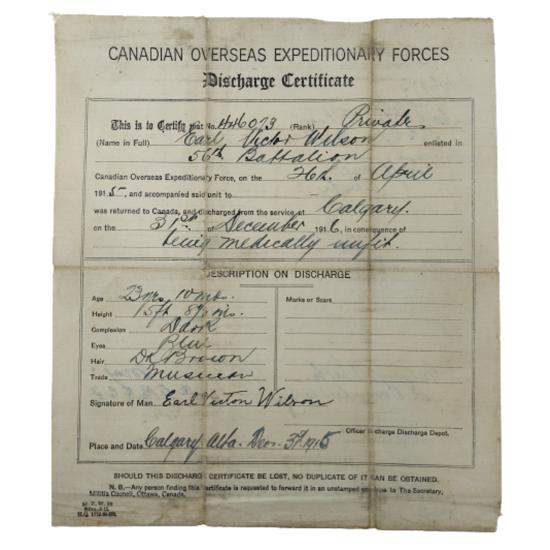 CANADIAN OVERSEAS EXPEDITIONARY FORCES
Discharge Certificate
This is to Certify that No. 446073 (Rank) Private
(Name in Full) Earl Victor Wilson enlisted in
56th Battalion
Canadian Overseas Expeditionary Force, on the of April
1915, and accompanied said unit to
was returned to Canada, and discharged from the service at Calgary.
on the 31st of December 1916, in consequence of
being medically unfit.
DESCRIPTION ON DISCHARGE
Age 23 yrs. 10 mths.
Height 5ft ins.
Complexion Dark
Eyes Blue
Hair Dk Brown
Trade Musician
Marks or Scars
Signature of Man. Earl Victor Wilson
Officer in charge Discharge Depot.
Place and Date Calgary. Alta. 1915
SHOULD THIS DISCHARGE CERTIFICATE BE LOST, NO DUPLICATE OF IT CAN BE OBTAINED.
N. B.—Any person finding this Certificate is requested to forward it in an unstamped envelope to The Secretary,
Militia Council, Ottawa, Canada.